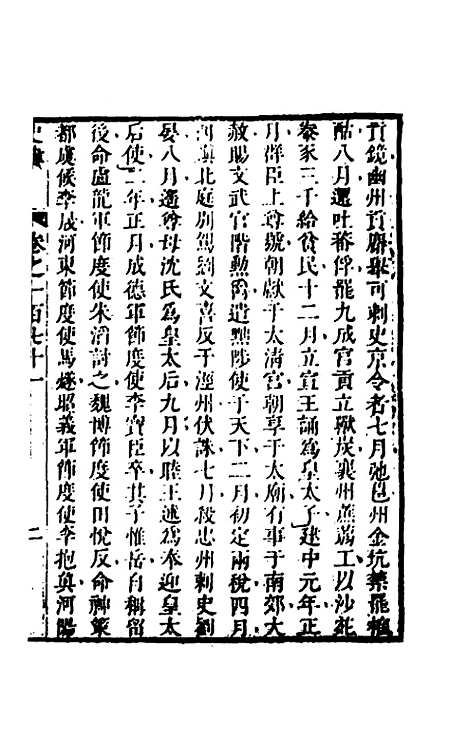 貢鏡幽州貢麝舉可刺史京令者七月弛邕州金坑禁罷榷
酤八月還吐蕃俘罷九成官貢立獸炭襄州蔗蒻工以沙苑
豢豕三千給貧民十二月立宣王誦為皇太子建中元年正
月羣臣上尊號朝獻于太清宮朝享于太廟有事于南郊大
赦賜文武官階勲爵遣黜陟使于天下二月初定兩稅四月
別駕劉文喜反于涇州伏誅七月殺忠州刺史劉
晏八月遥尊母沈氏為皇太后九月以睦王述為奉迎皇太
后使二年正月成德軍節度使李寶臣卒其子惟岳自稱留
後命盧龍軍節度使朱滔討之魏博節度使田悅反命神策
都虞候李晟河東節度使馬燧昭義軍節度使李抱真河陽
史 卷之一百七十一 二